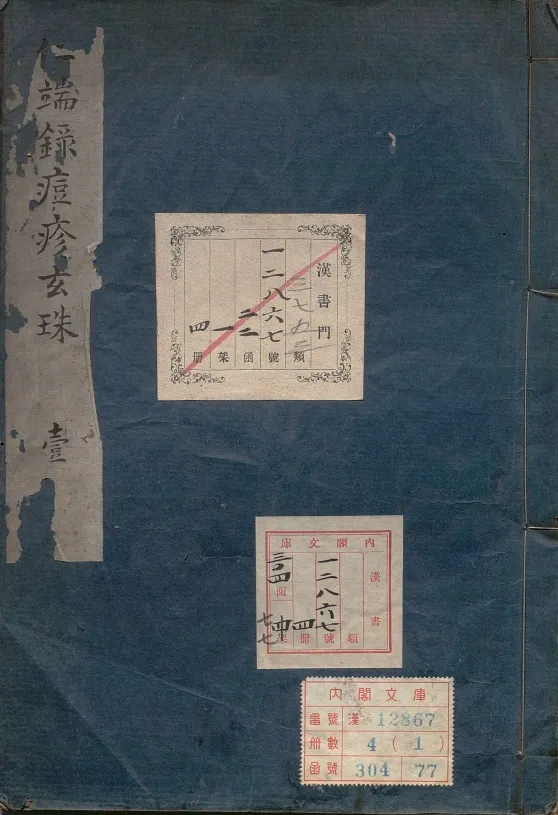 仁端錄痘疹玄珠 壹
漢書門
三七五二
類
一二八六七
號
二二
函
一
架
四
册
内閣文庫
漢書
一二八六七
類號
四
册
三〇四
函
七七
架
内閣文庫
番號 漢 12867
册數 4 (1)
函號 304 77